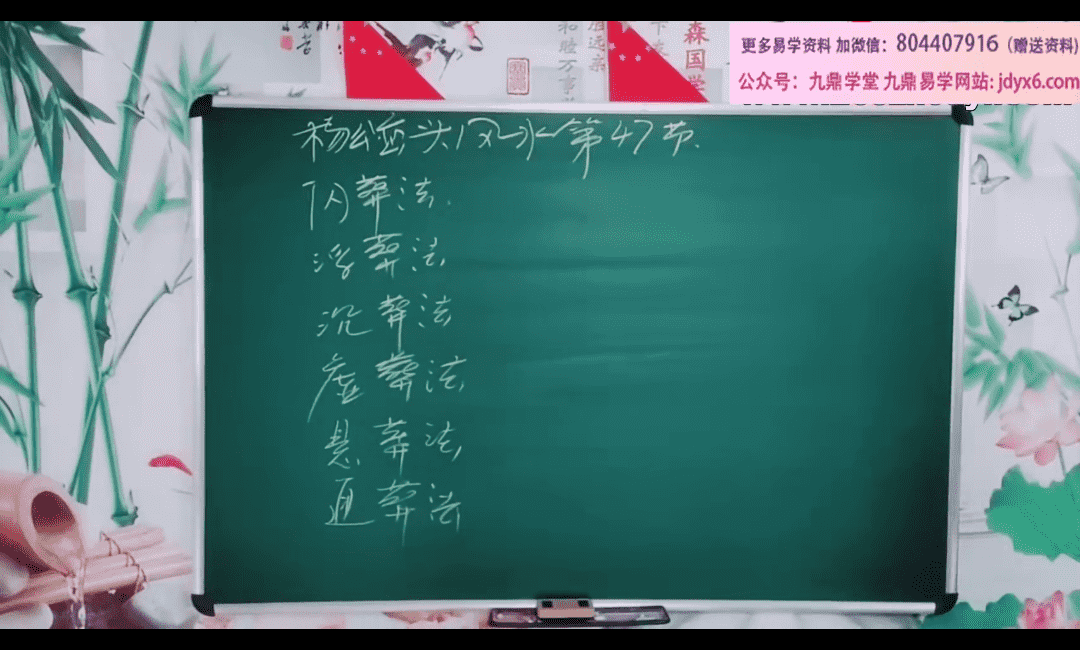 更多易学资料 加微信：804407916（赠送资料)
公众号：九鼎学堂 九鼎易学网站: jdyx6.com
森国学
和睦万事
杨公峦头风水第47节.
闪葬法.
浮葬法.
沉葬法
虚葬法.
悬葬法.
直葬法